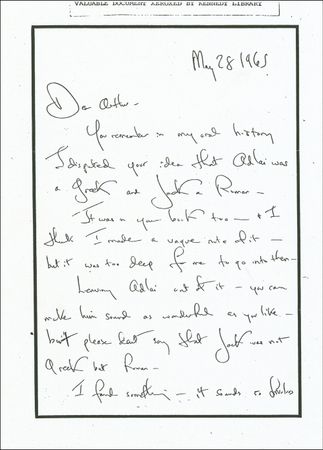 VALUABLE DOCUMENT XEROXED BY KENNEDY LIBRARY
May 28 1965
Dear Arthur —
You remember in my oral history
I disputed your idea that Adlai was
a Greek and Jack a Roman —
It was in your book too — & I
think I made a vague note of it —
but it was too deep for me to go into then —
Leaving Adlai out of it — you can
make him sound as wonderful as you like —
but please don't say that Jack was not
Greek but Roman —
I found something — it sounds so